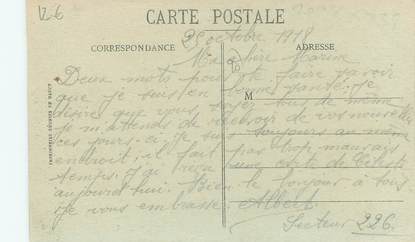 12-6
CARTE POSTALE
CORRESPONDANCE
ADRESSE
25 octobre 1918
Ma chère Marine
Deux mots pour te faire savoir
que je suis en bonne santé; je
désire que vous soyez tous de même
je m'attends de recevoir de vos nouvelles
ces jours-ci; je suis toujours au même
endroit; il fait pas trop mauvais
temps. J'ai reçu une carte de Céleste
aujourd'hui. Bien le bonjour à tous
je vous embrasse. Albert.
Secteur 226.
M
IMPRIMERIES RÉUNIES DE NANCY